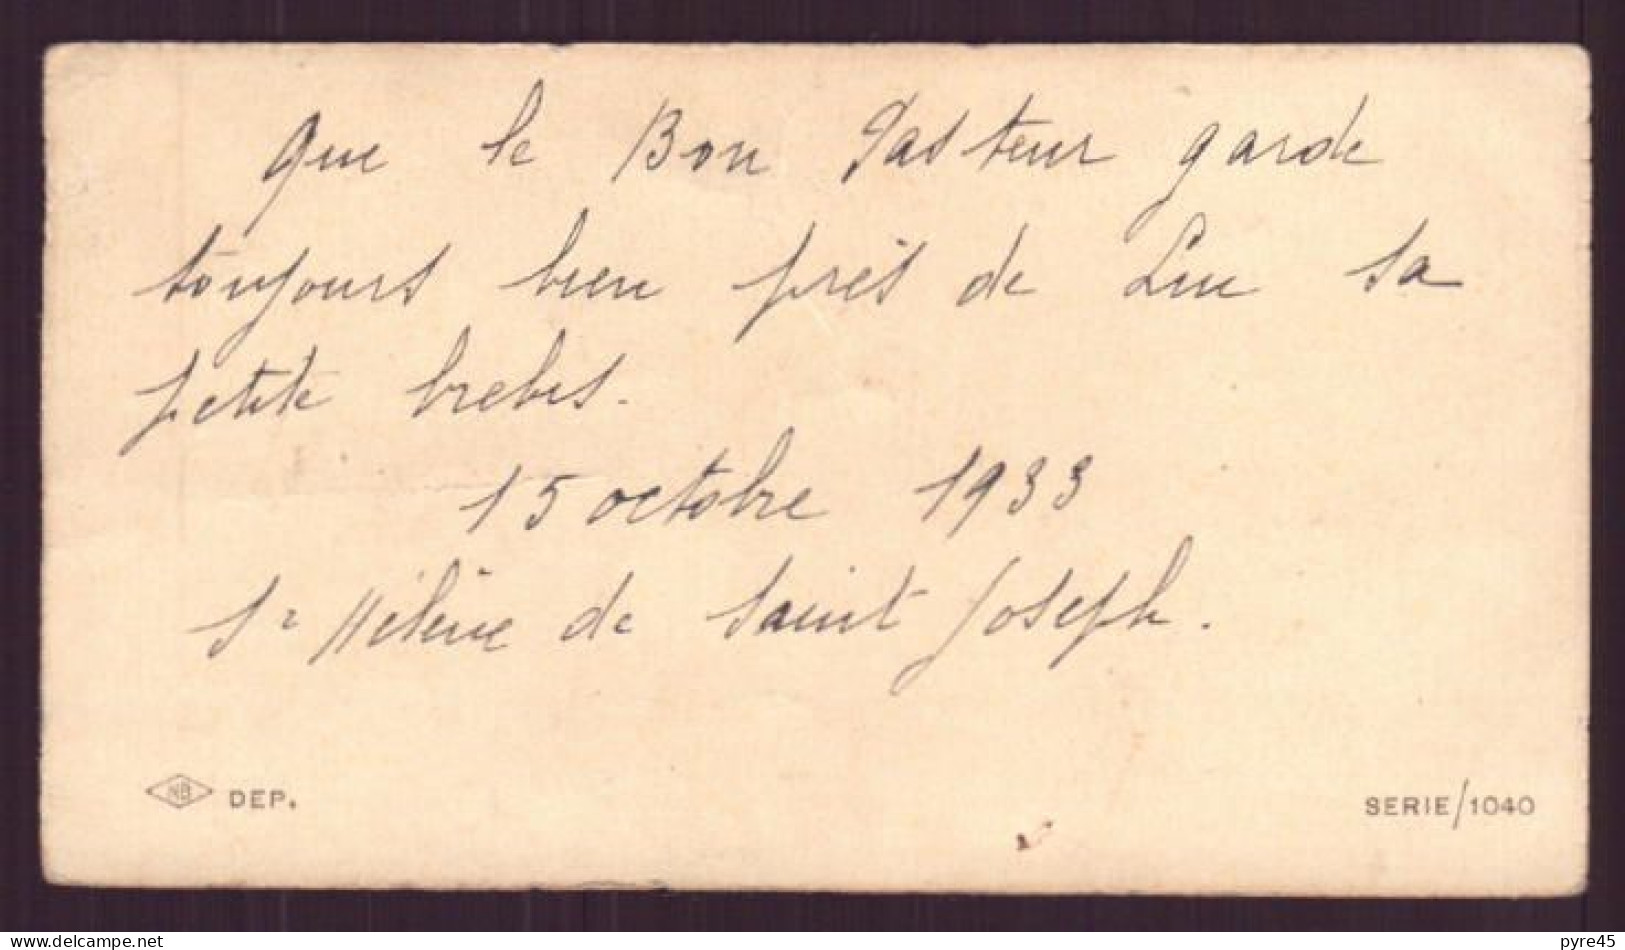 Que le Bon Pasteur garde
toujours bien près de Lui sa
petite brebis.
15 octobre 1933
Sr Hélène de Saint Joseph.
NB DEP.
SERIE/1040
pyre45